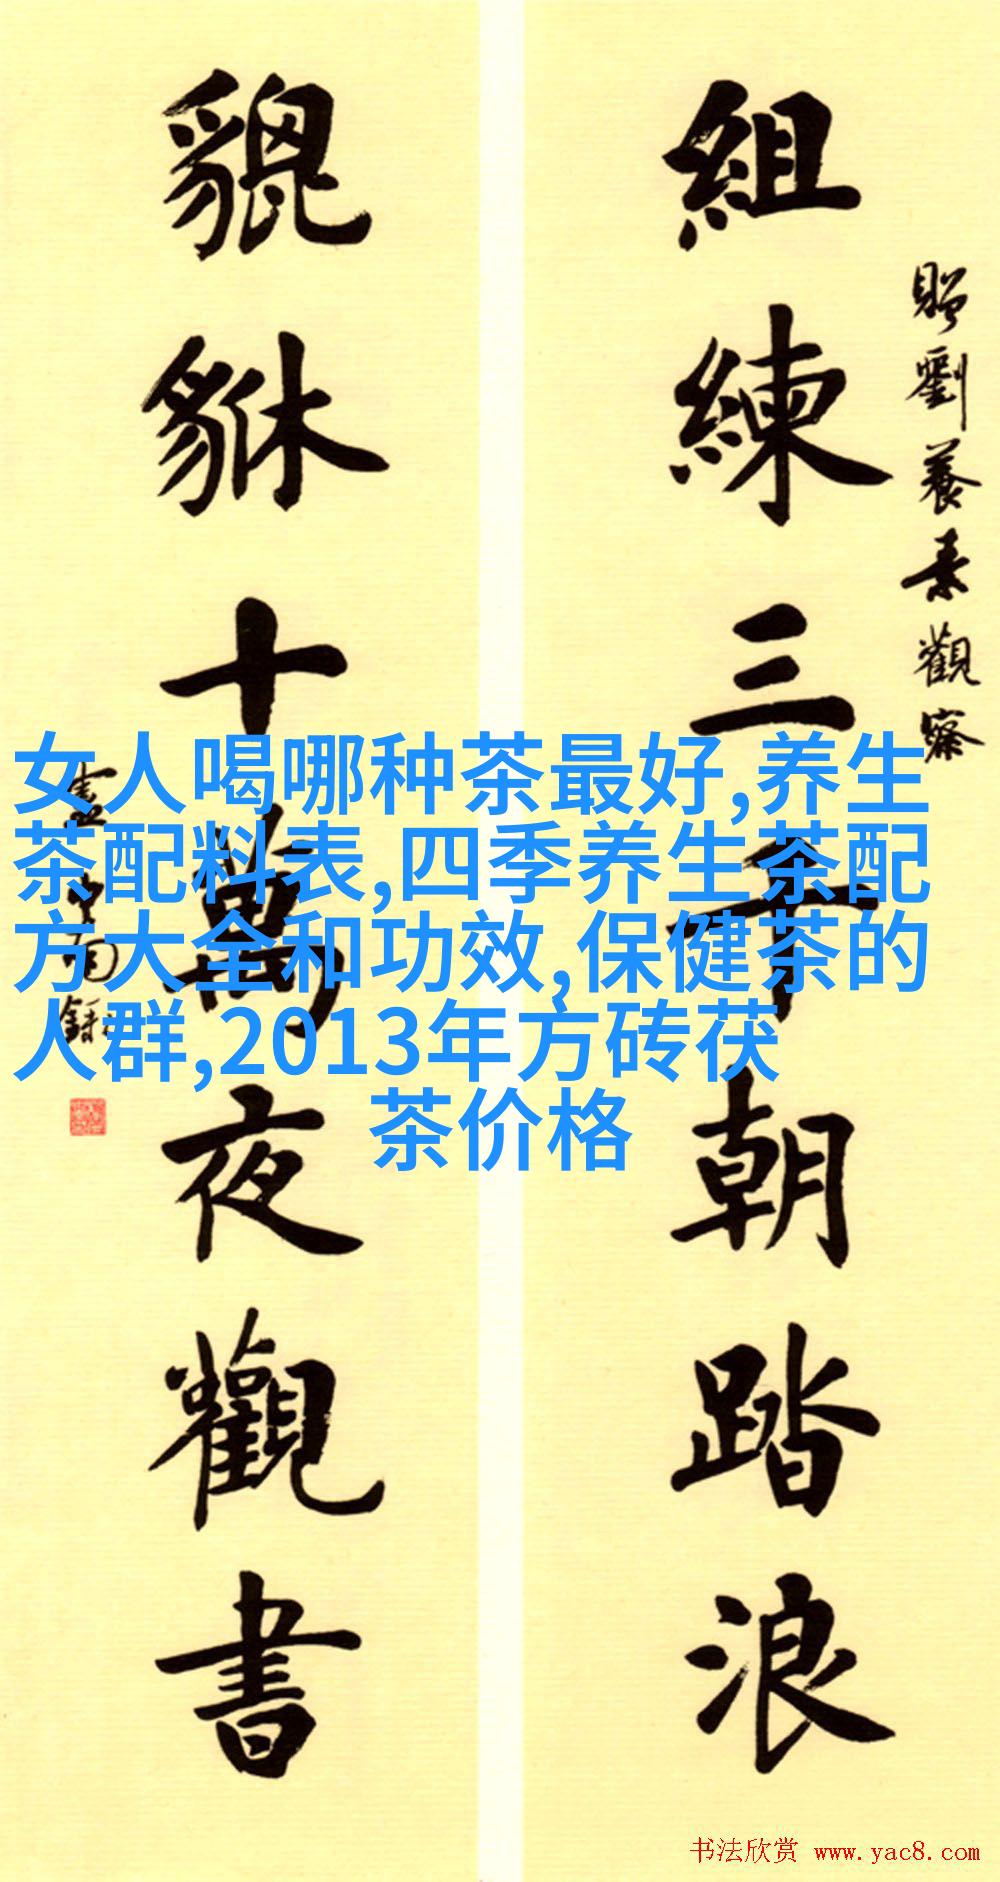 贈劉養素觀察
組練三千朝踏浪
貔貅十萬夜觀書
女人喝哪种茶最好,养生
茶配料表,四季养生茶配
方大全和功效,保健茶的
人群,2013年方砖茯
茶价格
书法欣赏 www.yac8.com